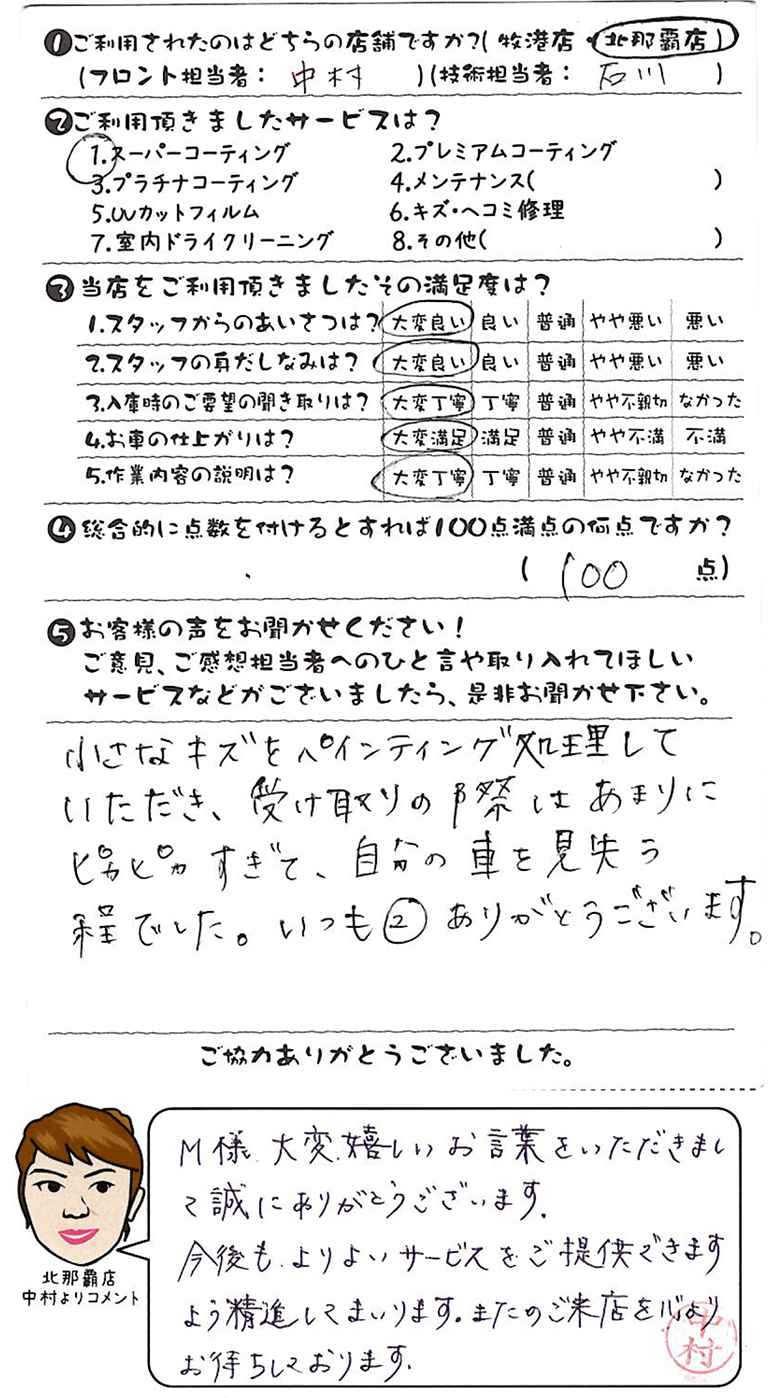 ❶ご利用されたのはどちらの店舗ですか?(牧港店・北那覇店)
(フロント担当者: 中村 )(技術担当者: 石川 )
❷ご利用頂きましたサービスは?
1.スーパーコーティング 2.プレミアムコーティング
3.プラチナコーティング 4.メンテナンス( )
5.UVカットフィルム 6.キズ・ヘコミ修理
7.室内ドライクリーニング 8.その他( )
❸当店をご利用頂きましたその満足度は?
1.スタッフからのあいさつは? 大変良い 良い 普通 やや悪い 悪い
2.スタッフの身だしなみは? 大変良い 良い 普通 やや悪い 悪い
3.入庫時のご要望の聞き取りは? 大変丁寧 丁寧 普通 やや不親切 なかった
4.お車の仕上がりは? 大変満足 満足 普通 やや不満 不満
5.作業内容の説明は? 大変丁寧 丁寧 普通 やや不親切 なかった
❹総合的に点数を付けるとすれば100点満点の何点ですか?
( 100 点)
❺お客様の声をお聞かせください!
ご意見、ご感想担当者へのひと言や取り入れてほしい
サービスなどがございましたら、是非お聞かせ下さい。
小さなキズをペインティング処理して
いただき、受け取りの際はあまりに
ピカピカすぎて、自分の車を見失う
程でした。いつも②ありがとうございます。
ご協力ありがとうございました。
M様、大変嬉しいお言葉をいただきまし
て誠にありがとうございます。
今後も、よりよいサービスをご提供できます
よう精進してまいります。またのご来店を心より
お待ちしております。
中村
北那覇店
中村よりコメント